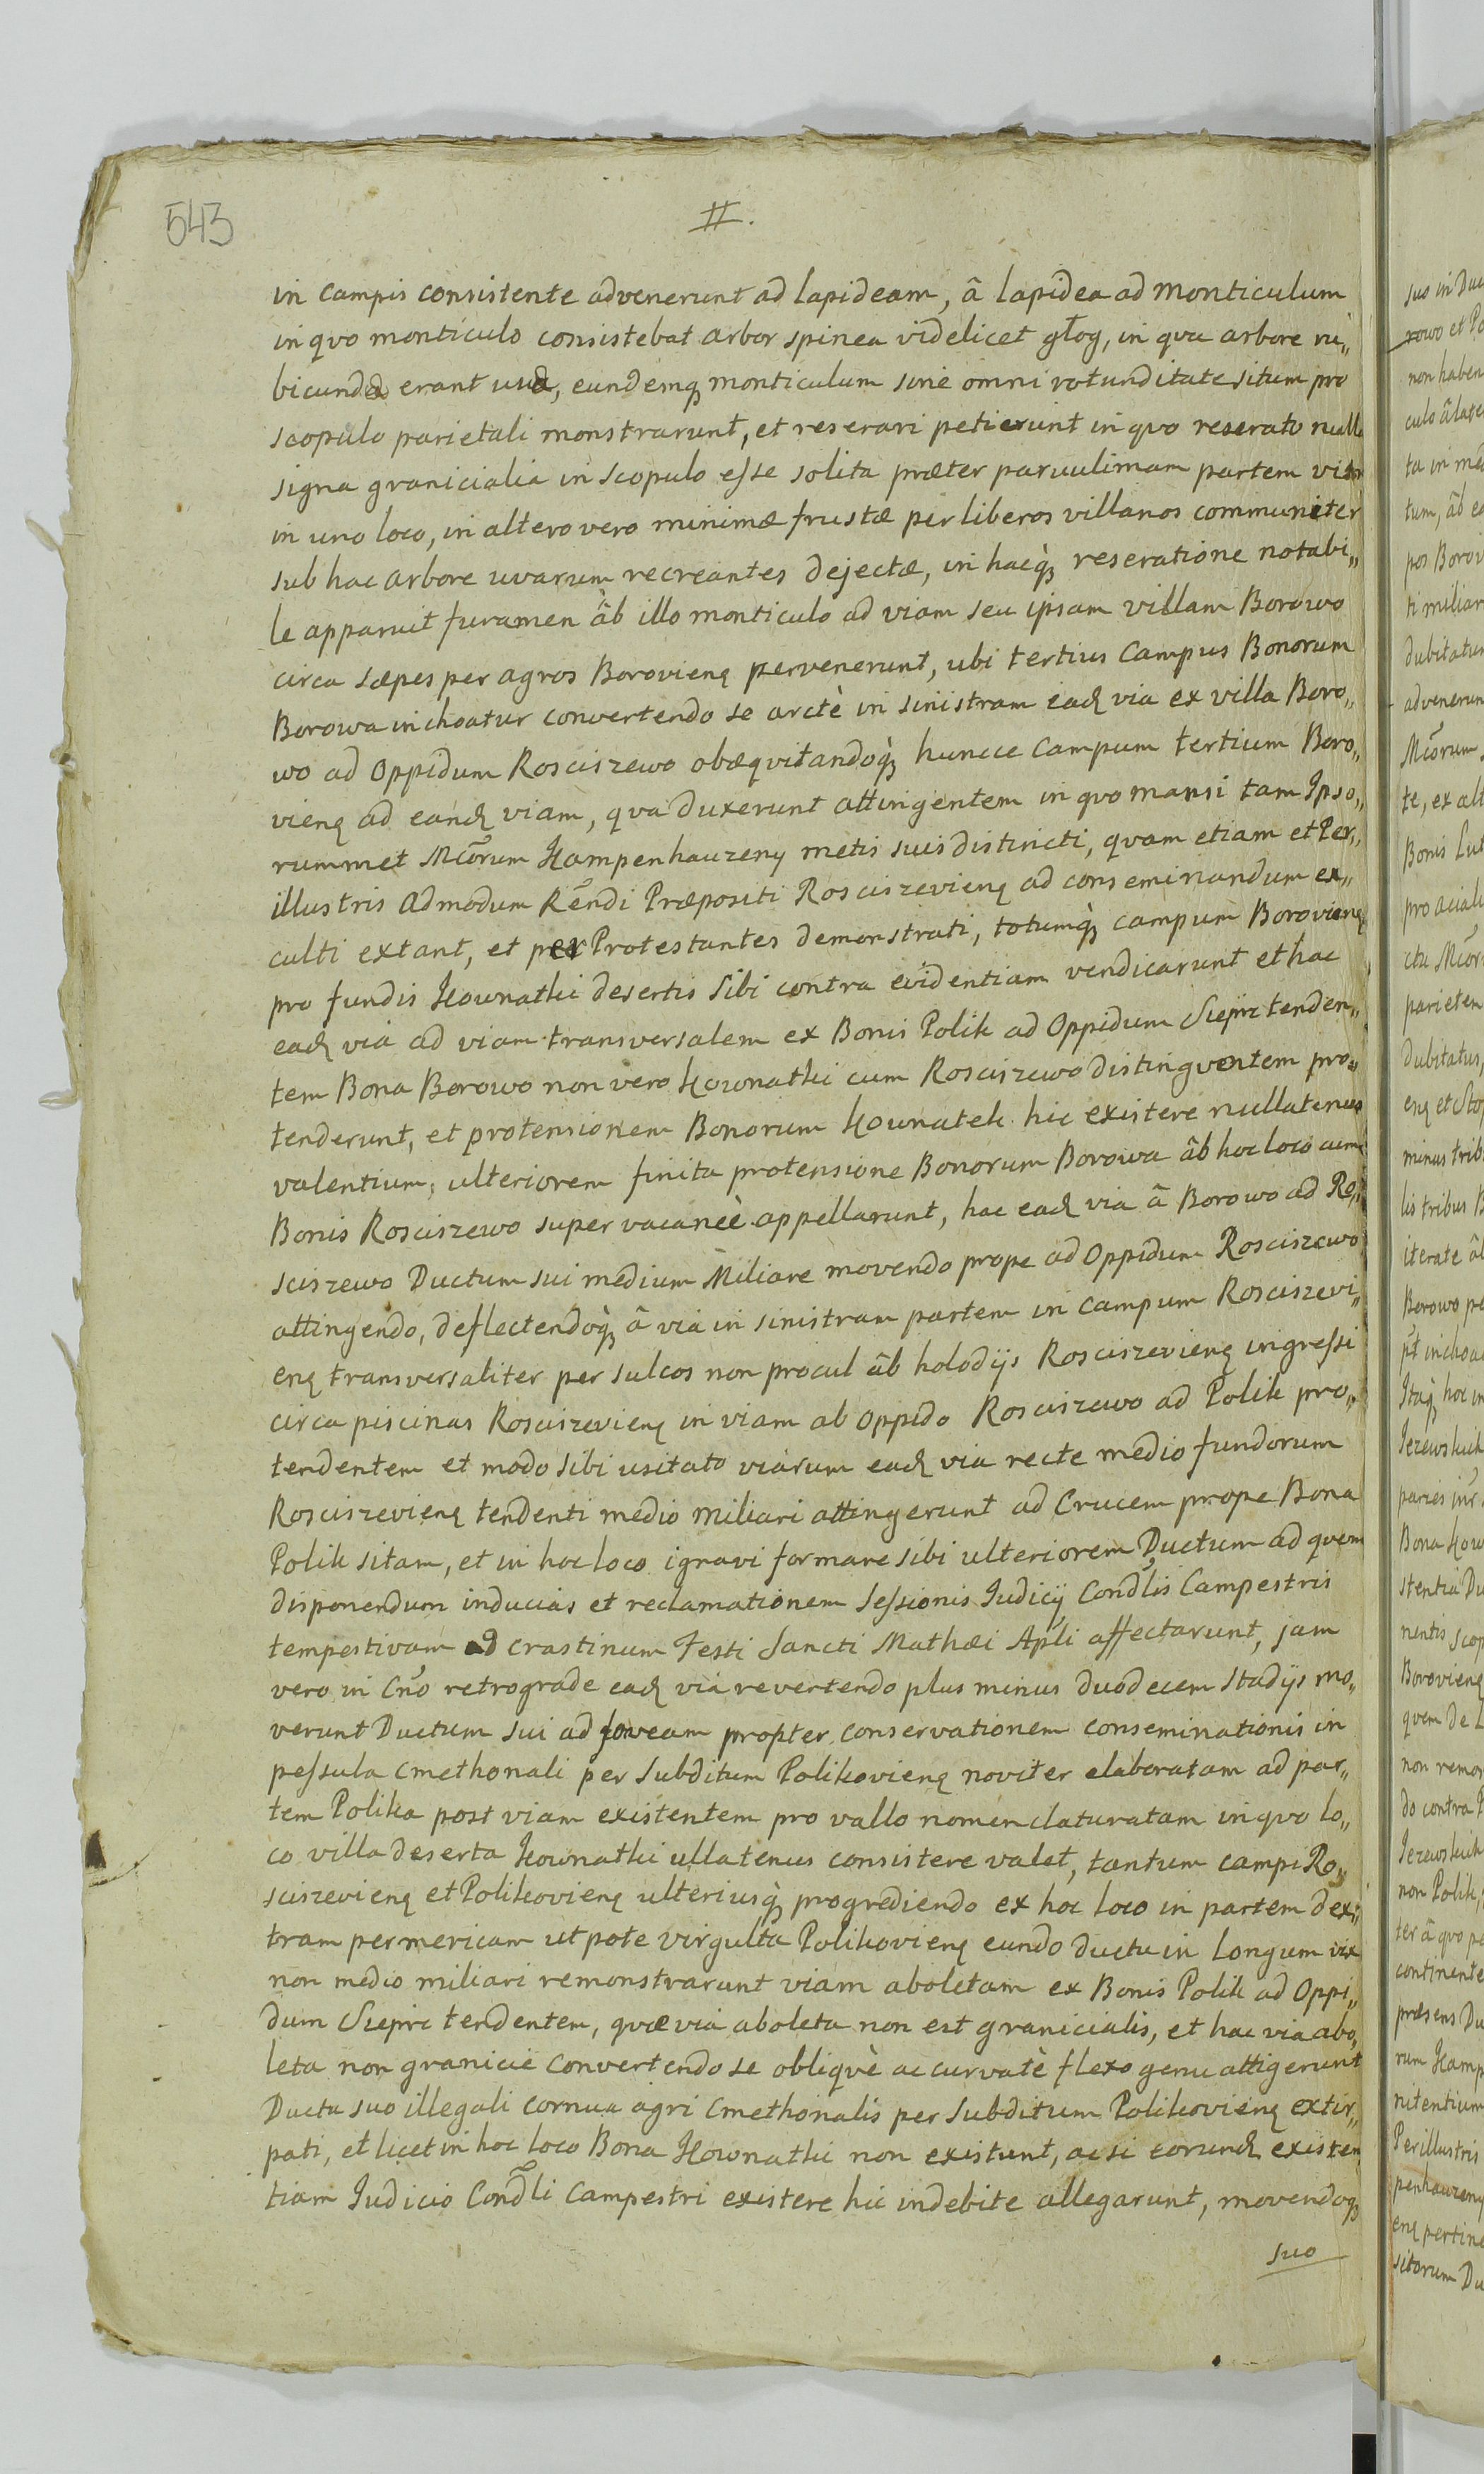 543
II.
in campis consistente advenerunt ad lapideam, â lapidea ad monticulum
in qvo monticulo consistebat arbor spinea videlicet głog, in qva arbore ru„
bicunda erant uva, eundemq; monticulum sine omni rotunditate situm pro
scopulo parietali monstrarunt, et reserari petierunt in qvo reserato nulla
signa granicialia in scopulo esse solita præter parvulimam partem vitri
in uno loco, in altero vero minimæ frustæ per liberos villanos communiter
sub hac arbore uvarum recreantes dejectæ, in hacq; reseratione notabi„
le apparuit furamen âb illo monticulo ad viam seu ipsam villam Borowo
circa sæpes per agros Borovienę pervenerunt, ubi tertius Campus Bonorum
Borowa inchoatur convertendo se arctè in sinistram eadę via ex villa Boro„
wo ad Oppidum Rosciszewo obæqvitandoq; huncce Campum tertium Boro„
vienę ad eandę viam, qva duxerunt attingentem in qvo mansi tam Ipso„
rummet Mcōrum Hampenhauzeny metis suis distincti, qvam etiam et Per„
illustris admodum Rēndi Præpositi Rosciszevienę ad conseminandum ex„
culti extant, et per Protestantes demonstrati, totumq; campum Borovienę
pro fundis Kownatki desertis sibi contra evidentiam vendicarunt et hac
eadę via ad viam transversalem ex Bonis Polik ad Oppidum Sieprc tenden„
tem Bona Borowo non vero Kownatki cum Rosciszewo distingventem pro„
tenderunt, et protensionem Bonorum Kownatek hic existere nullatenus
valentium, ulteriorem finita protensione Bonorum Borowa âb hoc loco cum
Bonis Rosciszewo super vacaneè appellarunt, hac eadę via â Borowo ad Ro„
sciszewo Ductum sui medium Miliare movendo prope ad Oppidum Rosciszewo
attingendo, deflectendoq; â via in sinistram partem in campum Rosciszevi„
enę transversaliter per sulcos non procul âb holodijs Rosciszevienę ingressi
circa piscinas Rosciszevienę in viam ab Oppido Rosciszewo ad Polik pro„
tendentem et modo sibi usitato viarum eadę via recte medio fundorum
Rosciszevienę tendenti medio miliari attingerunt ad Crucem prope Bona
Polik sitam, et in hoc loco ignavi formare sibi ulteriorem Ductum ad qvem
disponendum inducias et reclamationem Sessionis Iudicij Condlis Campestris
tempestivam ad crastinum Festi Sancti Mathæi Apli affectarunt, jam
vero in Cnō retrograde eadę via revertendo plus minus duodecem Stadijs mo„
verunt Ductum sui ad foveam propter conservationem conseminationis in
pessula cmethonali per Subditum Polikovienę noviter elaboratam ad par„
tem Polika post viam existentem pro vallo nomenclaturatam in qvo lo„
co villa deserta Kownatki ullatenus consistere valet, tantum campi Ro„
sciszevienę et Polikovienę ulteriusq; progrediendo ex hoc loco in partem dex„
tram per mericam utpote virgulta Polikovienę eundo ductu in longum vix
non medio miliari remonstrarunt viam aboletam ex Bonis Polik ad Oppi„
dum Sieprc tendentem, quæ via aboleta non est granicialis, et hac via abo„
leta non granicie convertendo se obliqvè ac curvatè flexo genu attigerunt
Ductu suo illegali cornua agri Cmethonalis per Subditum Polikovienę extir„
pati, et licet in hoc loco Bona Kownatki non existunt, ac si eorundę existen
tiam Iudicio Condli Campestri existere hic indebite allegarunt, movendoq;
suo